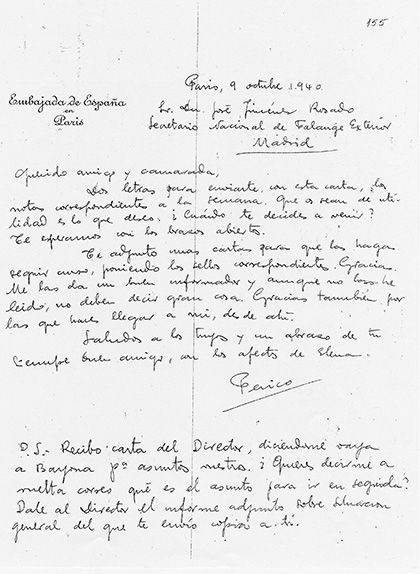 155
Embajada de España
en
París
París, 9 octubre 1.940.
Sr. Dn. José Jiménez Rosado
Secretario Nacional de Falange Exterior
Madrid
Querido amigo y camarada,
Dos letras para enviarte, con esta carta, las
notas correspondientes a la semana. Que os sean de uti-
lidad es lo que deseo. ¿Cuándo te decides a venir?
Te esperamos con los brazos abiertos.
Te adjunto unas cartas para que las hagas
seguir curso, poniendo los sellos correspondientes. Gracias.
Me las da un buen informador y aunque no las he
leido, no deben decir gran cosa. Gracias también por
las que haces llegar a mí, desde ahí.
Saludos a los tuyos y un abrazo de tu
siempre buen amigo, con los afectos de Elena.
Perico
P.S.- Recibo carta del Director, diciéndome vaya
a Bayona pª asuntos nuestros. ¿Quieres decirme a
vuelta correo qué es el asunto para ir en seguida?
Dale al Director el informe adjunto sobre situacion
general del que te envío copia a tí.